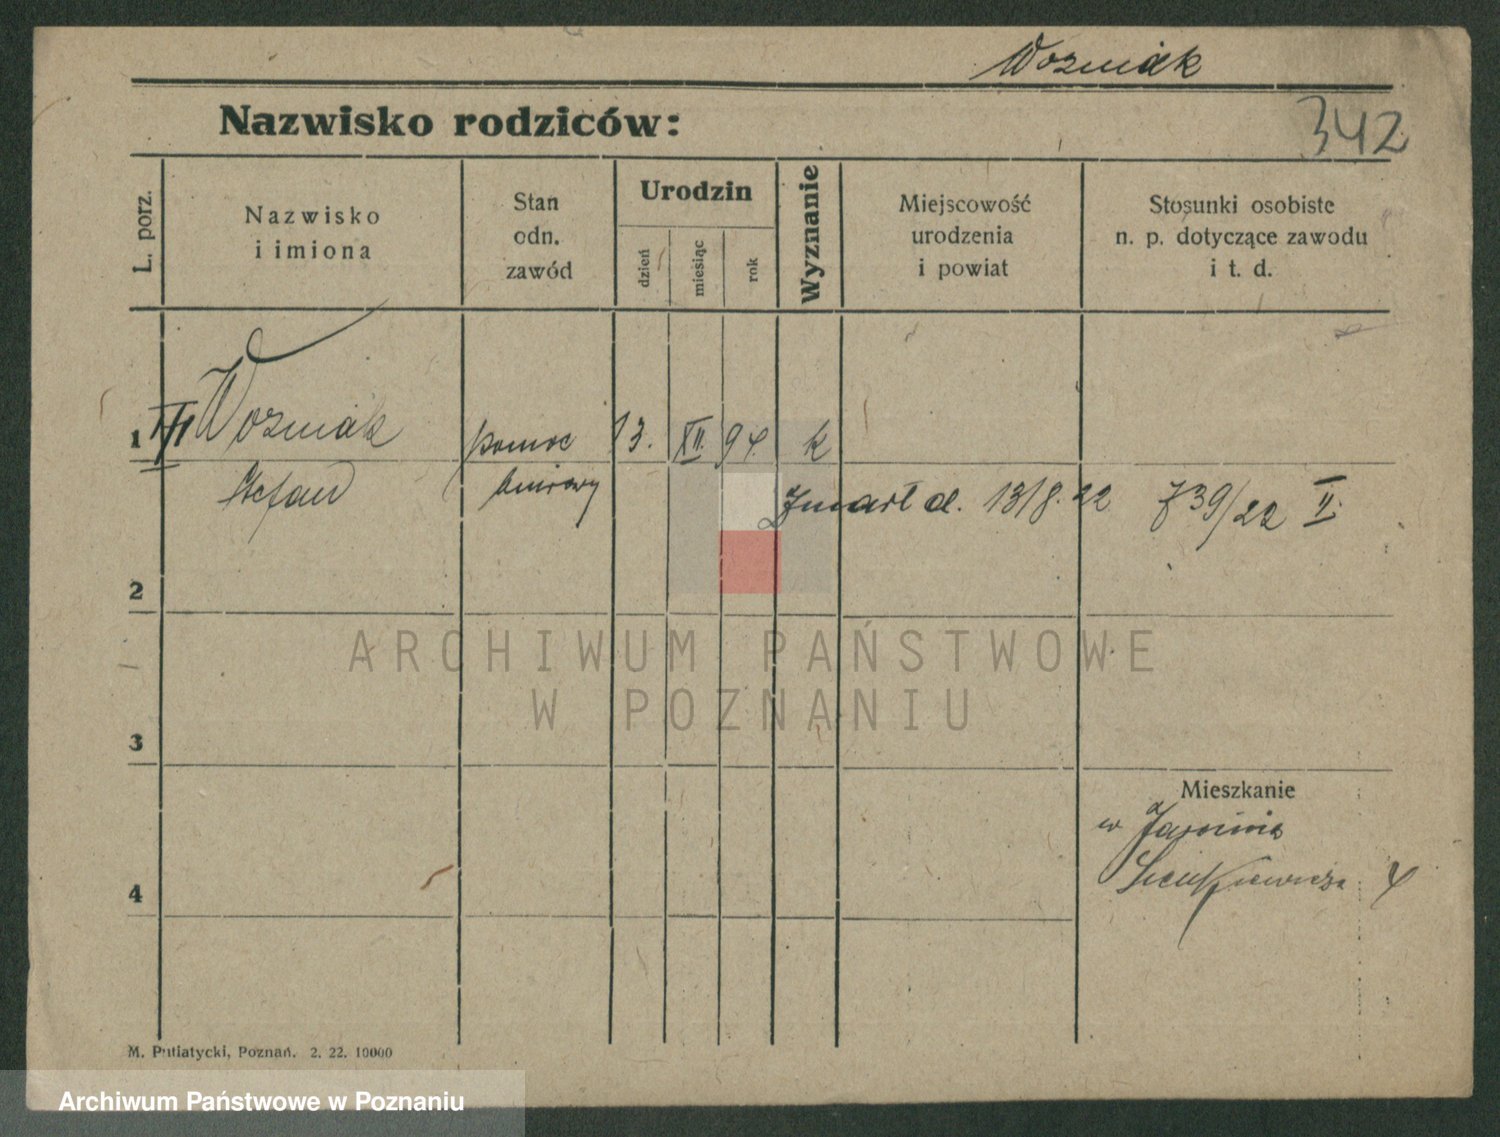 Wozniak
342
Nazwisko rodziców:
L. porz.
Nazwisko
i imiona
Stan
odn.
zawód
Urodzin
dzień
miesiąc
rok
Wyznanie
Miejscowość
urodzenia
i powiat
Stosunki osobiste
n. p. dotyczące zawodu
i t. d.
1 III Wozniak pomoc 13. XII. 94. k
Stefan biurowy
Zmarł d. 13/8. 22 739/22 II.
2
ARCHIWUM PAŃSTWOWE
W POZNANIU
3
Mieszkanie
w Jarocinie
4 Sienkiewicza 4
M. Putiatycki, Poznań. 2. 22. 10000
Archiwum Państwowe w Poznaniu